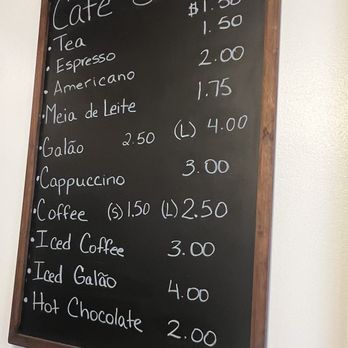 Café
• Tea $1.50
• Espresso 1.50
• Americano 2.00
• Meia de Leite 1.75
• Galão 2.50 (L) 4.00
• Cappuccino 3.00
• Coffee (s) 1.50 (L) 2.50
• Iced Coffee 3.00
• Iced Galão 4.00
• Hot Chocolate 2.00